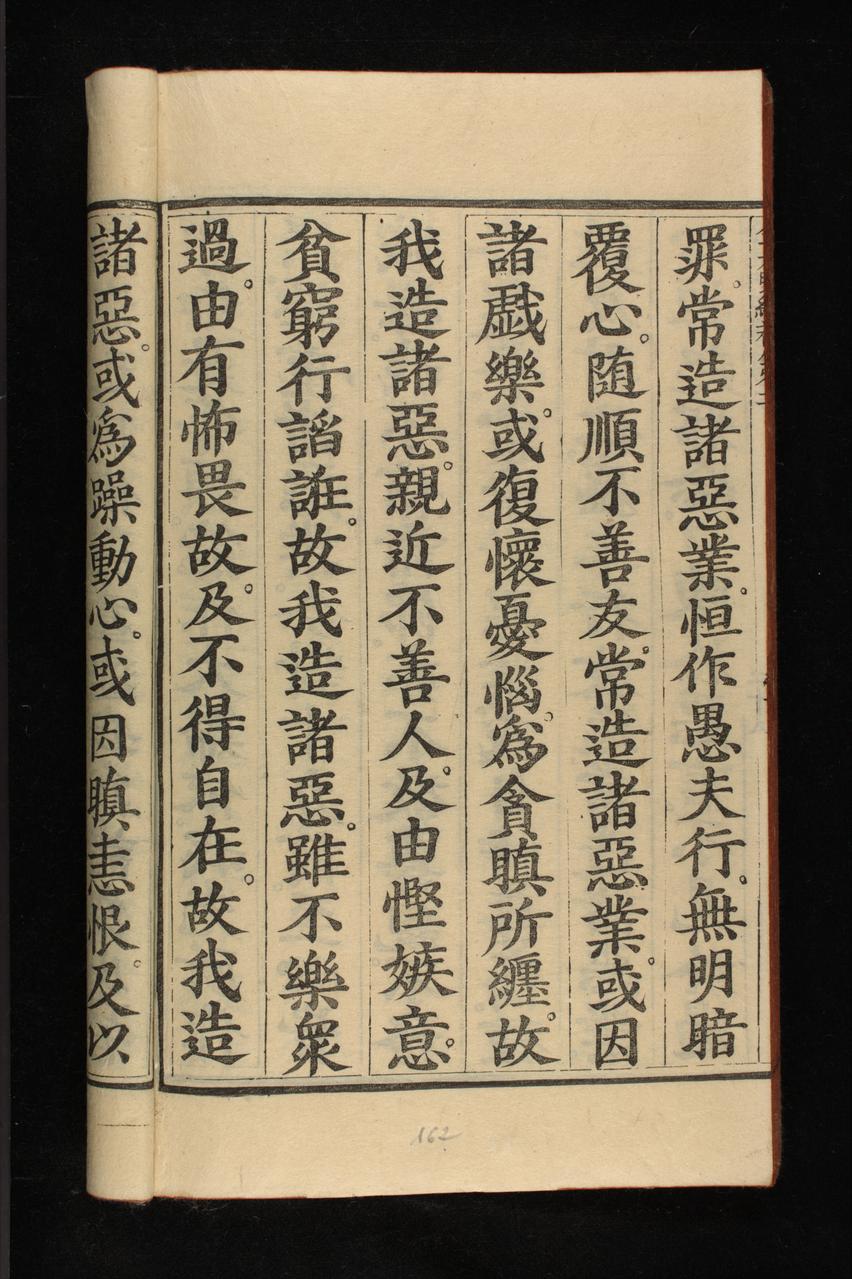 罪。常造諸惡業。恒作愚夫行。無明暗
覆心。随順不善友。常造諸惡業。或因
諸戱樂。或復懷憂惱。為貪瞋所纏。故
我造諸惡。親近不善人。及由慳嫉意。
貧窮行謟誑。故我造諸惡。雖不樂衆
過。由有怖畏故。及不得自在。故我造
諸惡。或為躁動心。或因瞋恚恨。及以
162